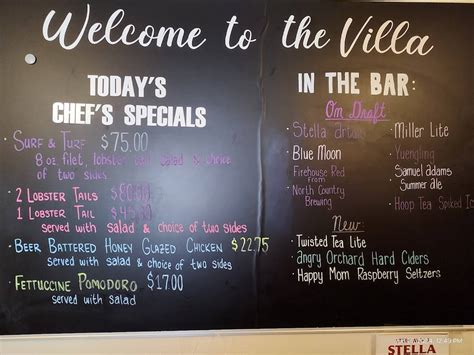 Welcome to the Villa
TODAY'S
CHEF'S SPECIALS
SURF & TURF $75.00
8 oz filet, lobster tail salad & choice
of two sides
2 LOBSTER TAILS
1 LOBSTER TAIL
served with salad & choice of two sides
BEER BATTERED HONEY GLAZED CHICKEN $22.75
served with salad & choice of two sides
FETTUCCINE POMODORO $17.00
served with salad
IN THE BAR:
On Draft
Stella Artois
Blue Moon
Firehouse Red
From
North Country
Brewing
Miller Lite
Yuengling
Samuel Adams
Summer ale
Hoop Tea Spiked
New
Twisted Tea Lite
angry Orchard Hard Ciders
Happy Mom Raspberry Seltzers
STELLA